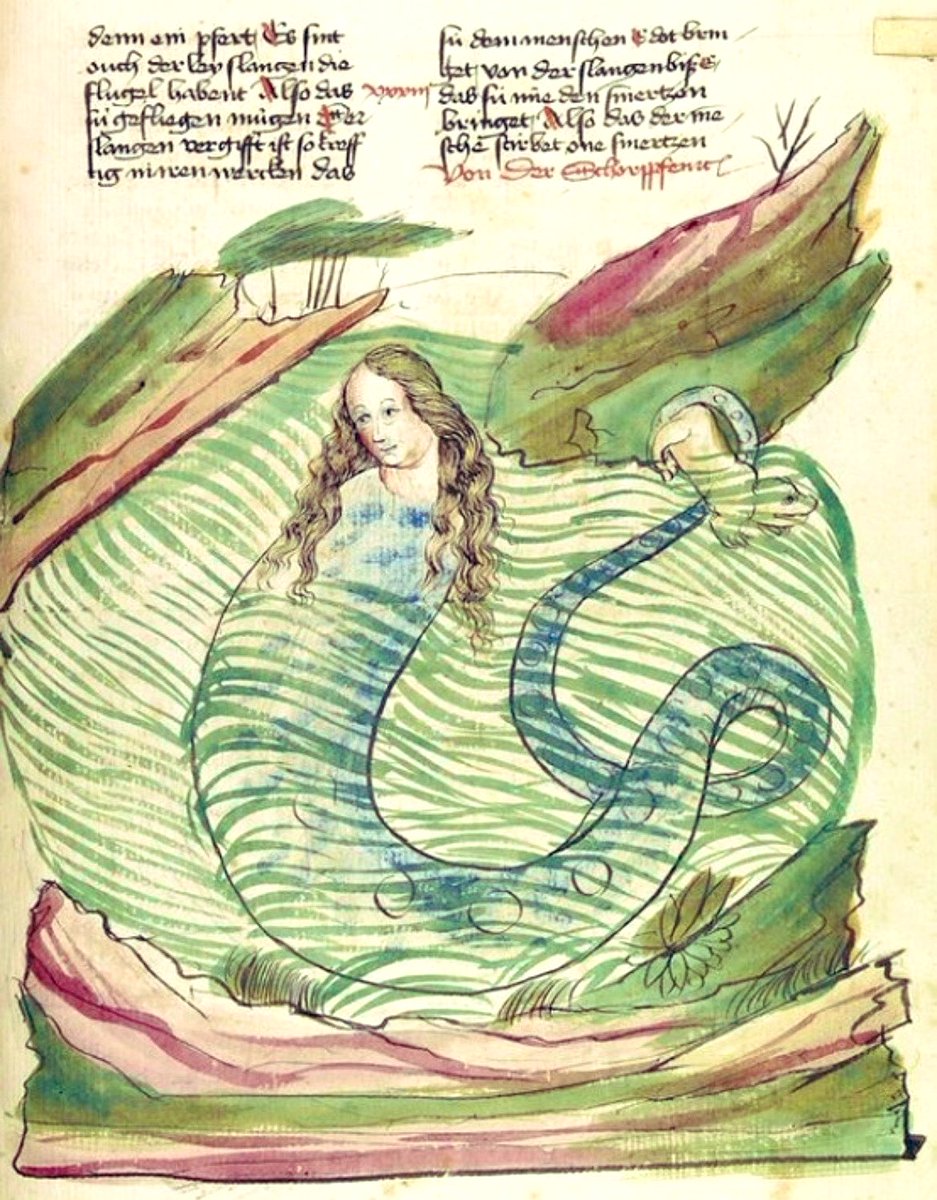 denn ein pfert Es sint
ouch der ley slangen die
flúgel habent Also das
sú gefliegen múgen Der
slangen vergifft ist so kreff
tig in iren wercken das
sú dem menschen E dot brin
get von der slangen bisß
das sú nie den smertzen
bringet Also das der me
sche stirbet one smertzen
Von der Schorppfenn